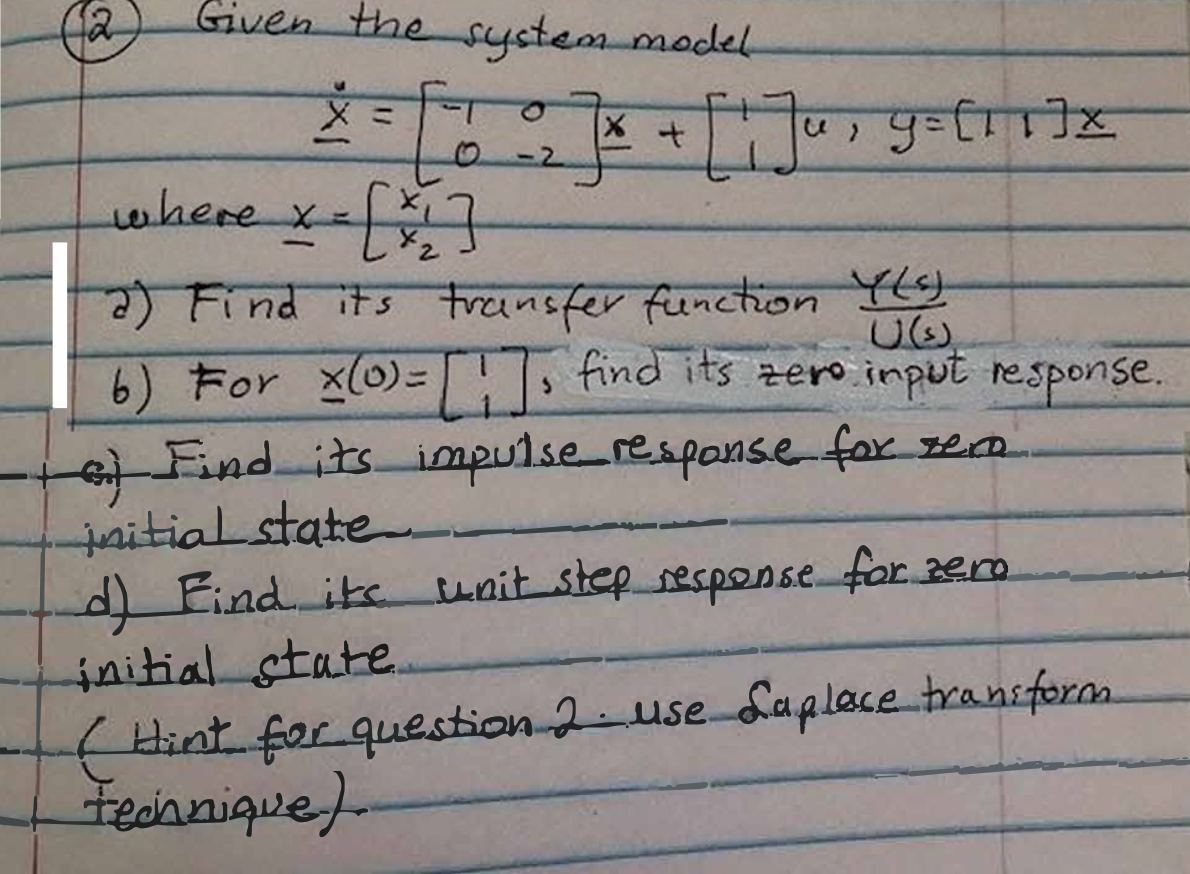 (2) Given the system model
ẋ = [-1 0; 0 -2] x + [1; 1] u, y = [1 1] x
where x = [x₁; x₂]
a) Find its transfer function Y(s)/U(s)
b) For x(0) = [1; 1], find its zero input response.
c) Find its impulse response for zero
initial state
d) Find its unit step response for zero
initial state
(Hint for question 2: use Laplace transform
technique)